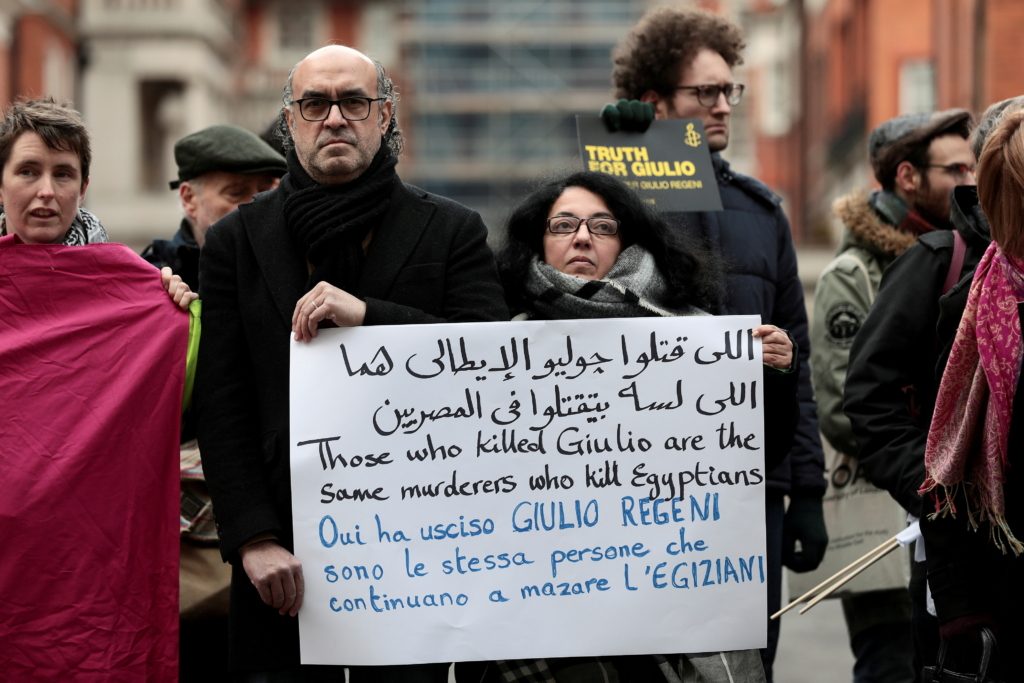 TRUTH
FOR GIULIO
GIULIO REGENI
اللى قتلوا جوليو الإيطالى هما
اللى لسه بيتقتلوا فى المصريين
Those who killed Giulio are the
same murderers who kill Egyptians
Oui ha usciso GIULIO REGENI
sono le stessa persone che
continuano a mazare L'EGIZIANI